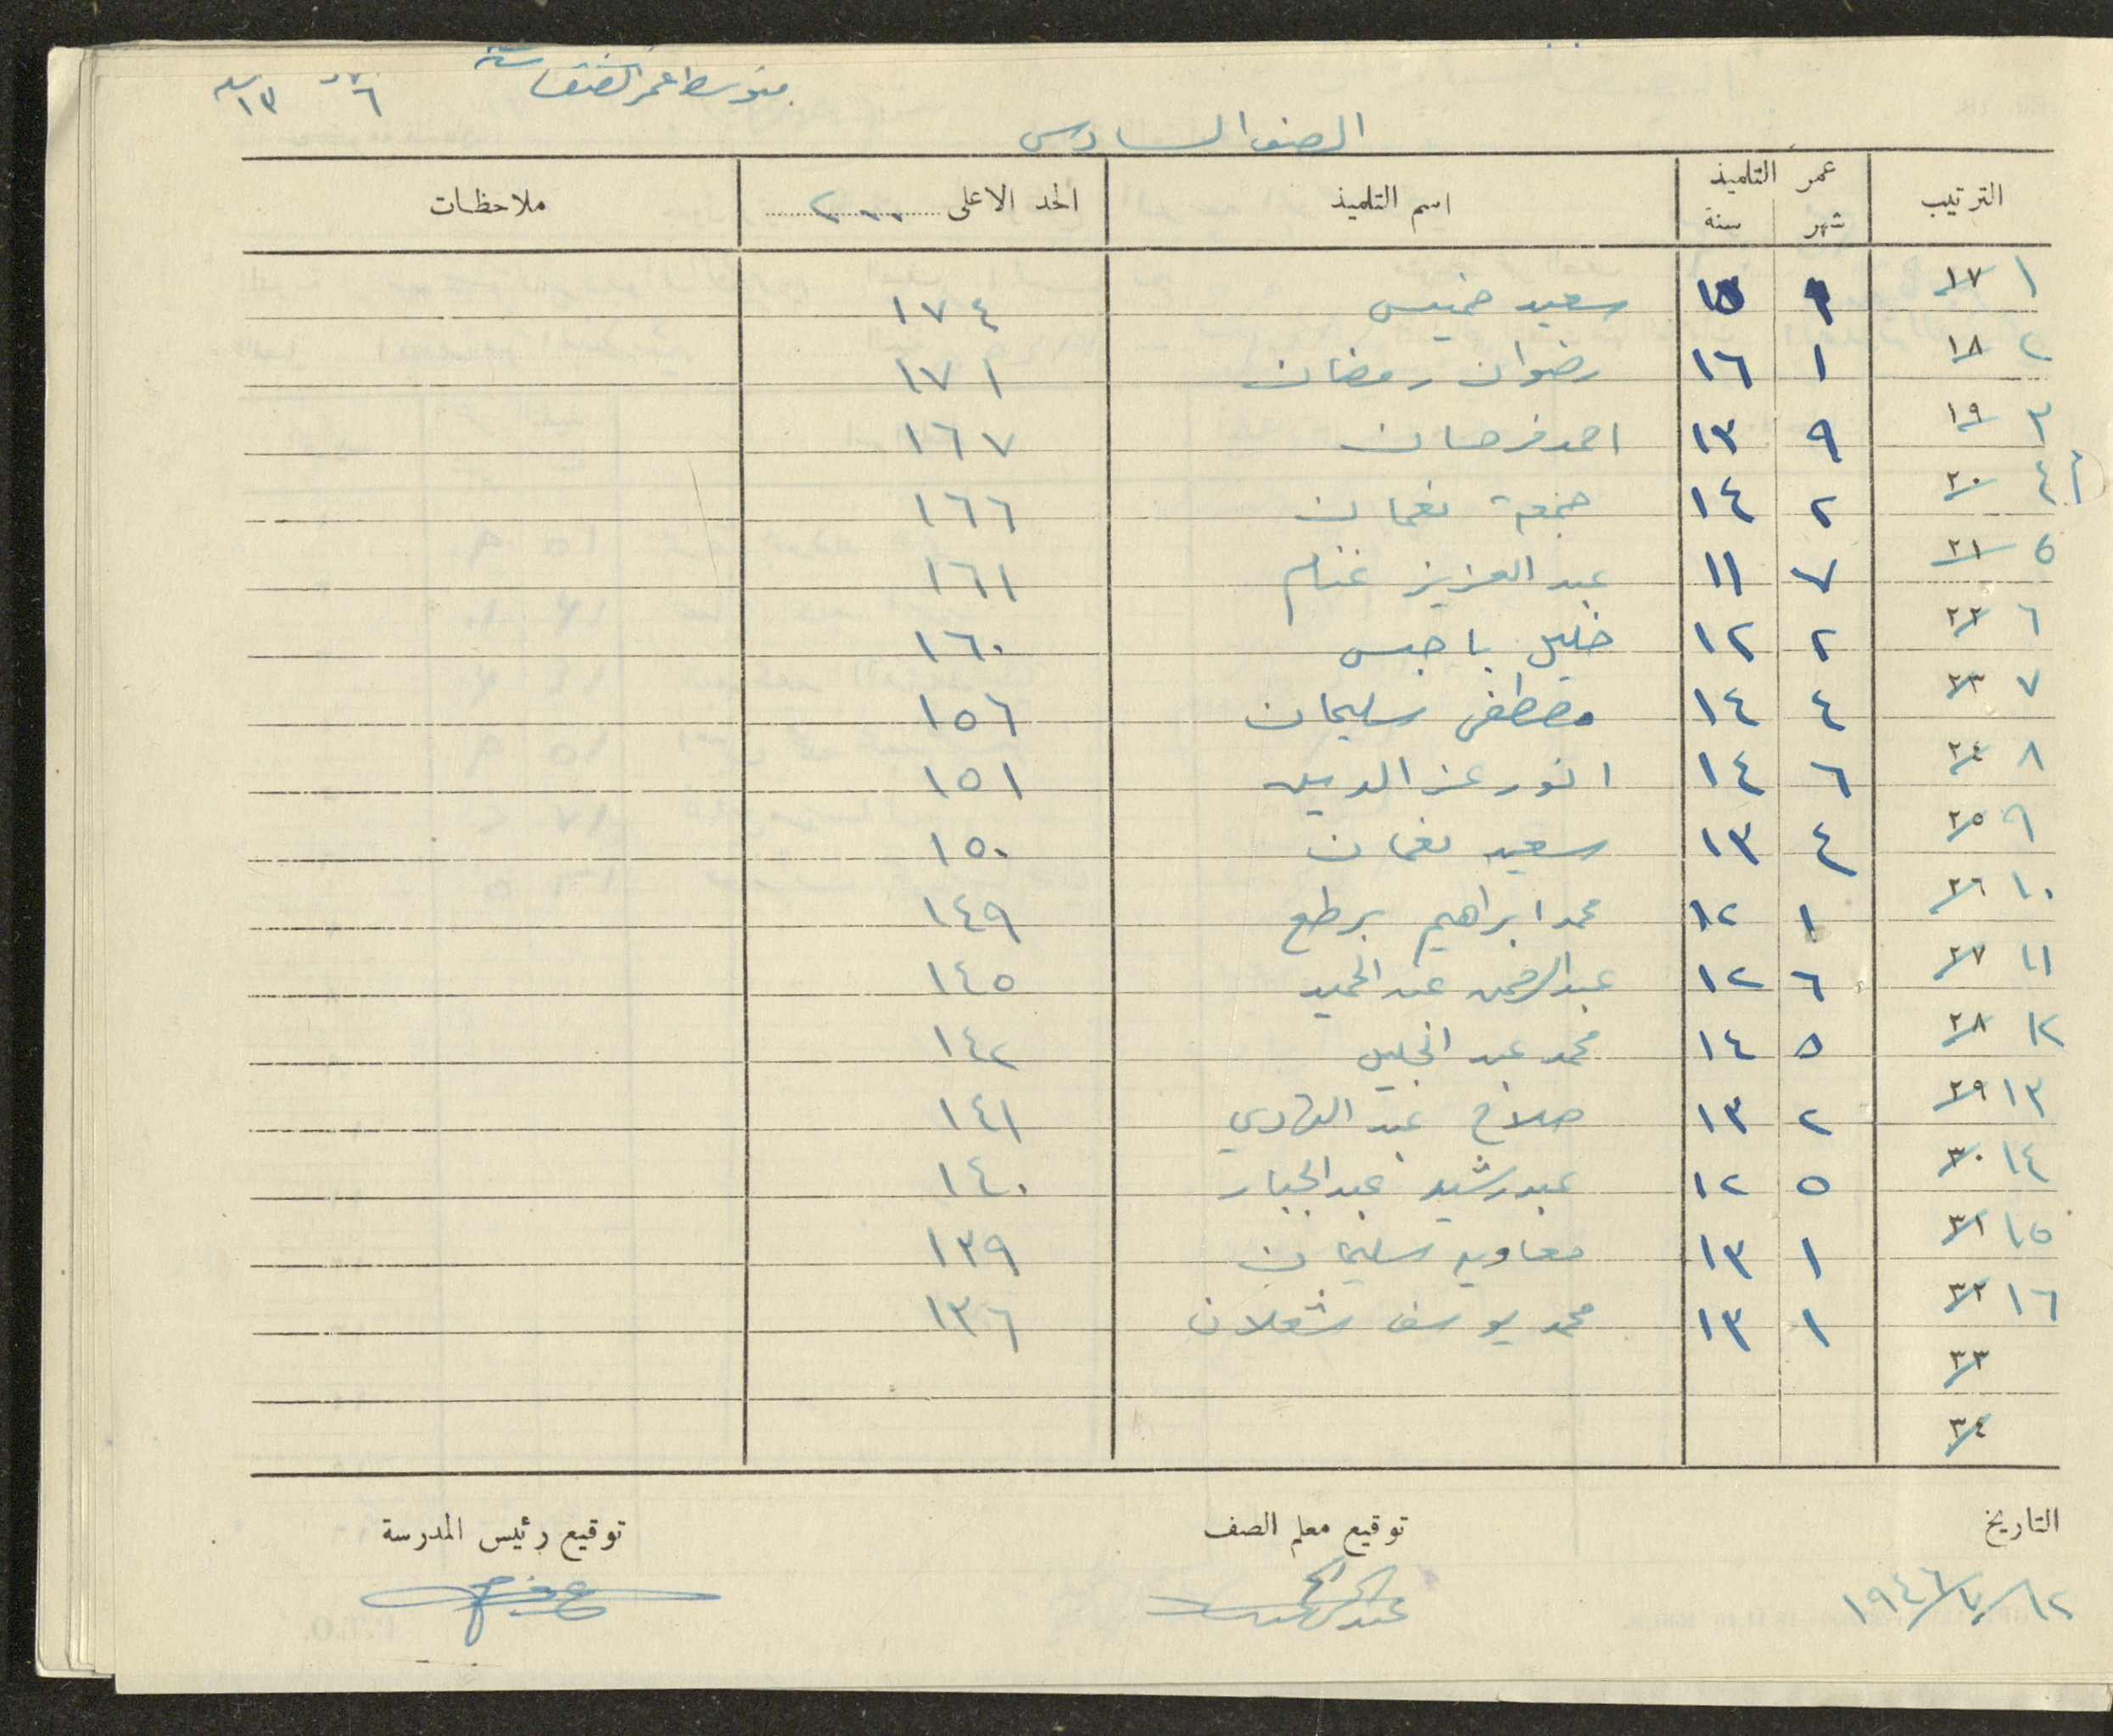 متوسط عمر الصف سنة ٦ ١٣
الصف السادس
الترتيب عمر التلميذ اسم التلميذ الحد الاعلى ٢٠٠ ملاحظات
شهر سنة
١ ١٧ ١ ١٥ سعيد خميس ١٧٤
٢ ١٨ ١ ١٦ رضوان رمضان ١٧١
٣ ١٩ ٩ ١٣ احمد فرحان ١٦٧
٤ ٢٠ ٢ ١٤ جمعة نعمان ١٦٦
٥ ٢١ ٧ ١١ عبد العزيز غنام ١٦١
٦ ٢٢ ٢ ١٢ خليل باجس ١٦٠
٧ ٢٣ ٤ ١٤ مصطفى سليمان ١٥٦
٨ ٢٤ ٦ ١٤ انور عز الدين ١٥١
٩ ٢٥ ٤ ١٣ سعيد نعمان ١٥٠
١٠ ٢٦ ١ ١٢ محمد ابراهيم برطع ١٤٩
١١ ٢٧ ٦ ١٢ عبد الرحمن عبد الحميد ١٤٥
١٢ ٢٨ ٥ ١٤ محمد عبد الجليل ١٤٢
١٣ ٢٩ ٢ ١٣ صلاح عبد الهادي ١٤١
١٤ ٣٠ ٥ ١٢ عبد رشيد عبد الجبار ١٤٠
١٥ ٣١ ١ ١٣ معاويه سليمان ١٣٩
١٦ ٣٢ ١ ١٣ محمد يوسف شعلان ١٣٦
٣٣
٣٤
التاريخ توقيع معلم الصف توقيع رئيس المدرسة
١٢/٧/١٩٤٦